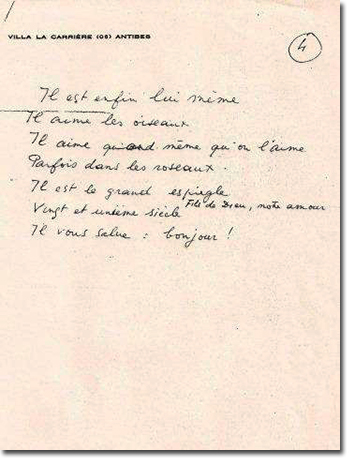 VILLA LA CARRIÈRE (06) ANTIBES
4
Il est enfin lui même
Il aime les oiseaux
Il aime quand même qu'on l'aime
Parfois dans les roseaux.
Il est le grand espiegle
Vingt et unième siècle Fils de Dieu, notre amour
Il vous salue : bonjour !